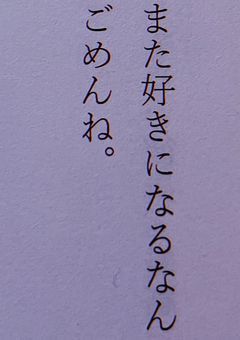 また好きになるなん
ごめんね。